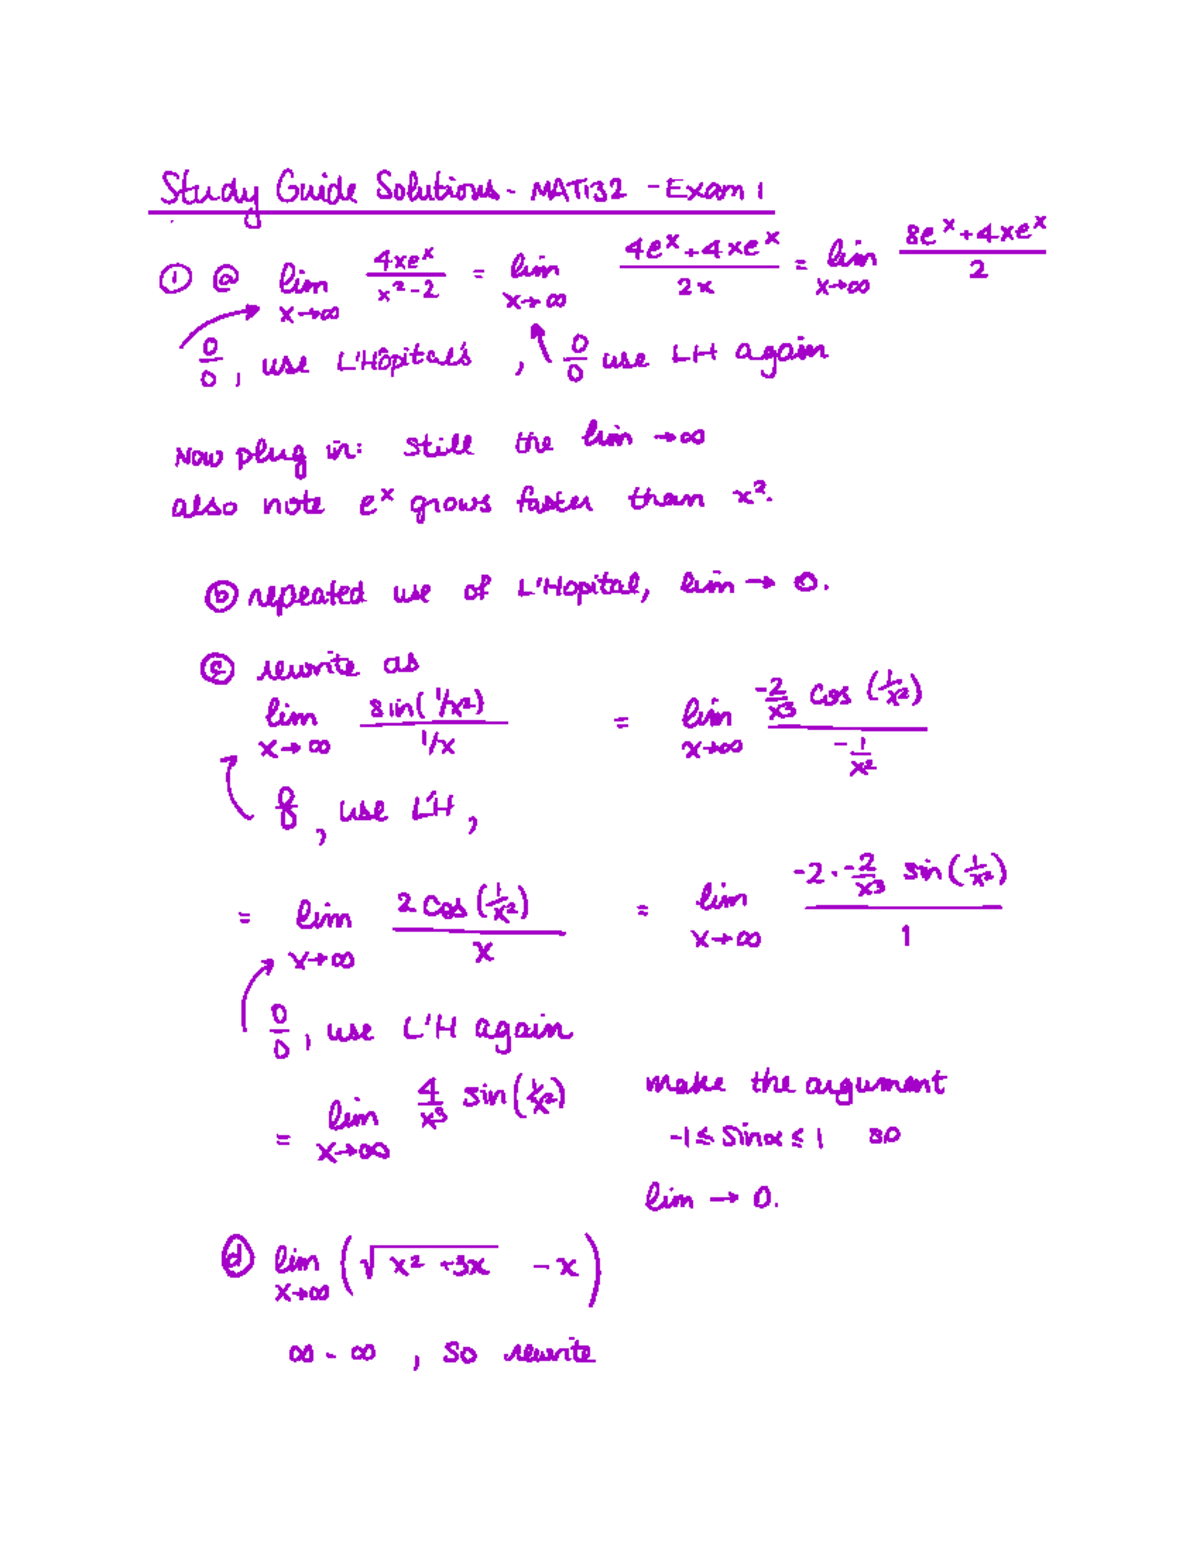 Study Guide Solutions - MAT132 - Exam 1
① ⓐ lim x→∞ 4xeˣ / x²-2 = lim x→∞ 4eˣ+4xeˣ / 2x = lim x→∞ 8eˣ+4xeˣ / 2
0/0, use L'Hôpital's, 0/0 use LH again
Now plug in: still the lim →∞
also note eˣ grows faster than x².
ⓑ repeated use of L'Hopital, lim → 0.
ⓒ rewrite as
lim x→∞ sin(1/x²) / 1/x = lim x→∞ -2/x³ cos(1/x²) / -1/x²
0/0, use L'H,
= lim x→∞ 2cos(1/x²) / x = lim x→∞ -2·-2/x³ sin(1/x²) / 1
0/0, use L'H again
= lim x→∞ 4/x³ sin(1/x²) make the argument
-1≤ sinα ≤ 1 so
lim → 0.
ⓓ lim x→∞ (√x²+3x - x)
∞ - ∞, so rewrite